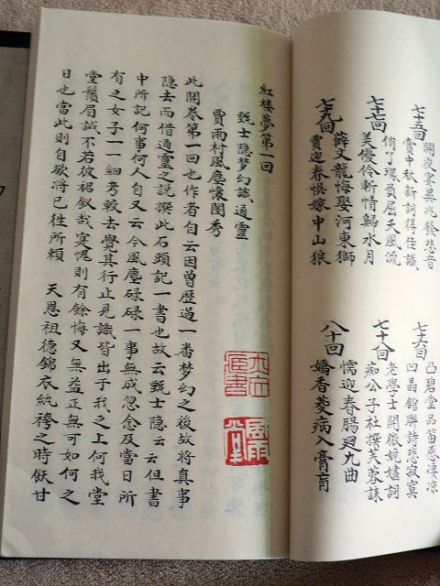 七十五回
開夜宴異兆發悲音
賞中秋新詞得佳讖
七十六回
凸碧堂品笛感淒凉
凹晶館聯詩悲寂寞
七十七回
俏丫環負屈夭風流
美優伶斬情歸水月
七十八回
老學士閒徵姽嫿詞
痴公子杜撰芙蓉誄
七十九回
薛文龍悔娶河東獅
賈迎春悞嫁中山狼
八十回
懦迎春腸廻九曲
嬌香菱病入膏肓
紅楼夢第一回
甄士隐梦幻識通靈
賈雨村風塵懷閨秀
此開卷第一回也作者自云因曾歷過一番梦幻之後故將真事
隐去而借通靈之說撰此石頭記一書也故云甄士隐云云但書
中所記何事何人自又云今風塵碌碌一事無成忽念及當日所
有之女子一一細考較去覺其行止見識皆出于我之上何我堂
堂鬚眉誠不若彼裙釵哉寔愧則有餘悔又無益正無可如何之
日也當此則自欲將已往所賴　天恩祖德錦衣紈袴之時飫甘